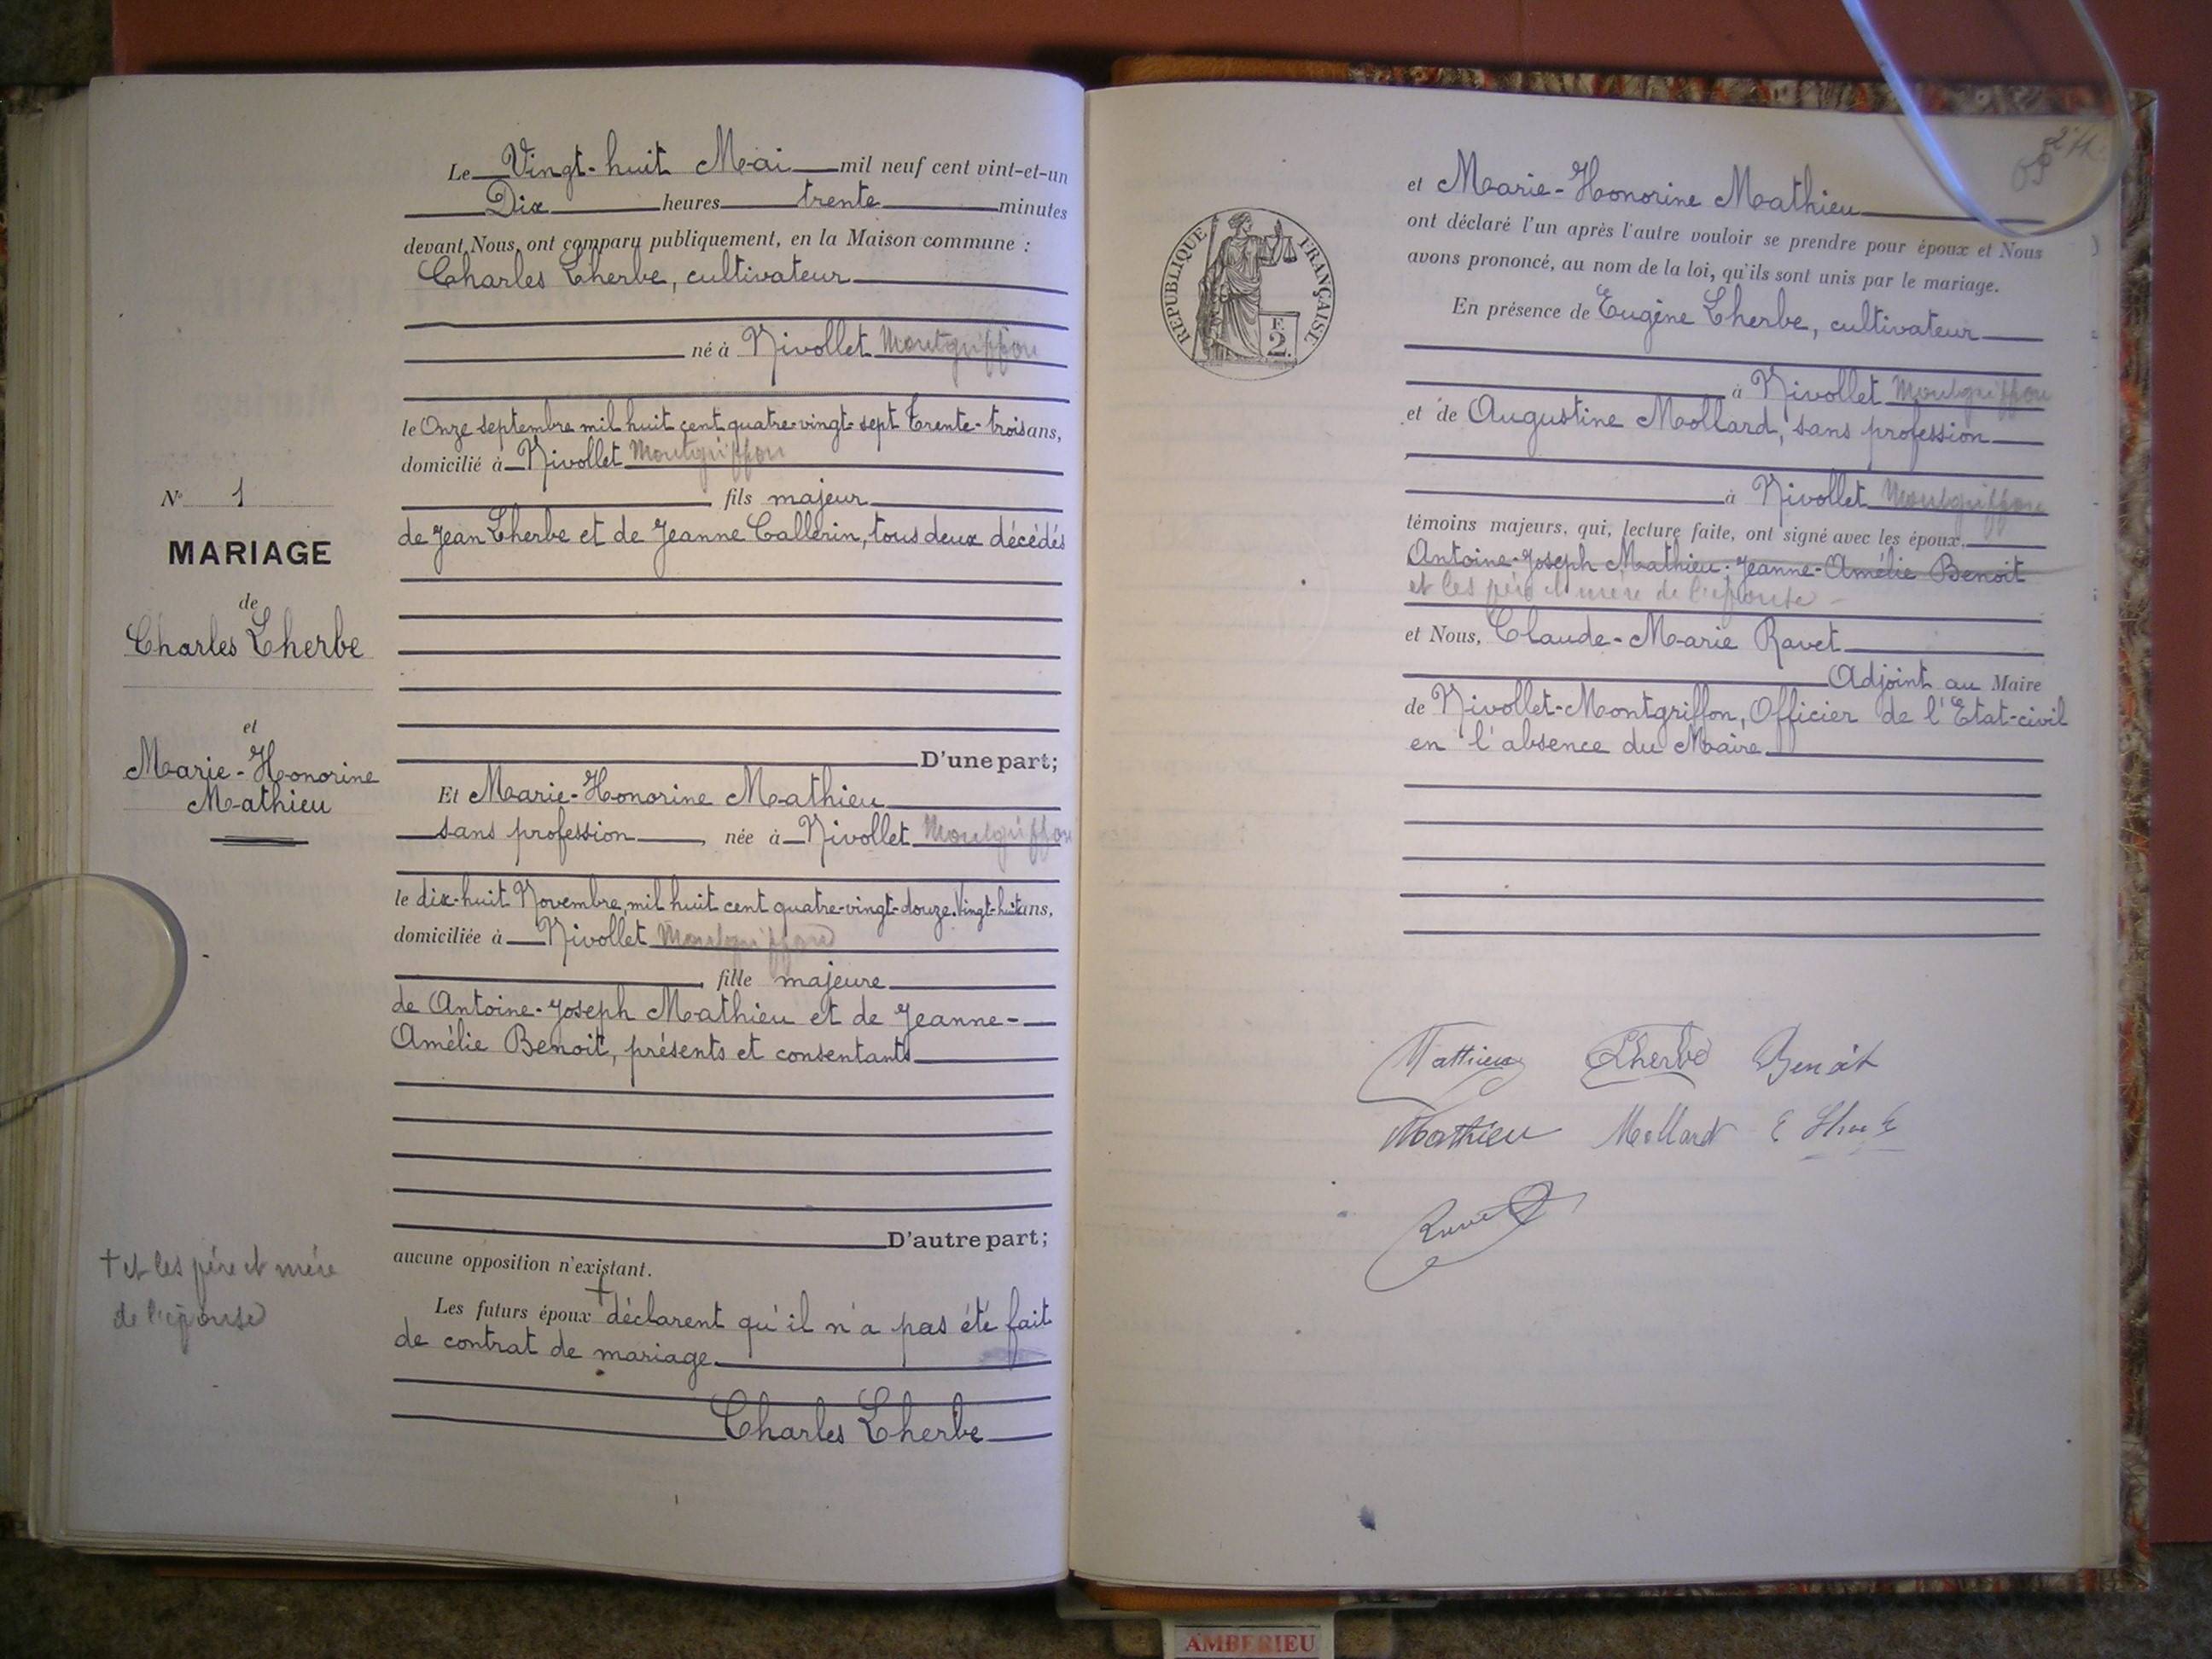 Le Vingt-huit Mai mil neuf cent vint-et-un
Dix heures trente minutes
devant Nous, ont comparu publiquement, en la Maison commune :
Charles Lherbe, cultivateur
né à Nivollet Montgriffon
le Onze septembre mil huit cent quatre-vingt-sept Trente-trois ans,
domicilié à Nivollet Montgriffon
fils majeur
de Jean Lherbe et de Jeanne Callerin, tous deux décédés
D'une part;
Et Marie-Honorine Mathieu
sans profession, née à Nivollet Montgriffon
le dix-huit Novembre mil huit cent quatre-vingt-douze. Vingt-huit ans,
domiciliée à Nivollet Montgriffon
fille majeure
de Antoine-Joseph Mathieu et de Jeanne-
Amélie Benoit, présents et consentants
D'autre part;
aucune opposition n'existant.
Les futurs époux † déclarent qu'il n'a pas été fait
de contrat de mariage.
Charles Lherbe
N° 1
MARIAGE
de
Charles Lherbe
et
Marie-Honorine
Mathieu
† et les père et mère
de l'épouse
2 M.
RÉPUBLIQUE FRANÇAISE
F.
2.
et Marie-Honorine Mathieu
ont déclaré l'un après l'autre vouloir se prendre pour époux et Nous
avons prononcé, au nom de la loi, qu'ils sont unis par le mariage.
En présence de Eugène Lherbe, cultivateur
à Nivollet Montgriffon
et de Augustine Mollard, sans profession
à Nivollet Montgriffon
témoins majeurs, qui, lecture faite, ont signé avec les époux,
Antoine-Joseph Mathieu. Jeanne-Amélie Benoit
et les père et mère de l'épouse
et Nous, Claude-Marie Ravet
Adjoint au Maire
de Nivollet-Montgriffon, Officier de l'Etat-civil
en l'absence du Maire
Mathieu Lherbe Benoit
Mathieu Mollard E Lherbe
Ravet
AMBERIEU